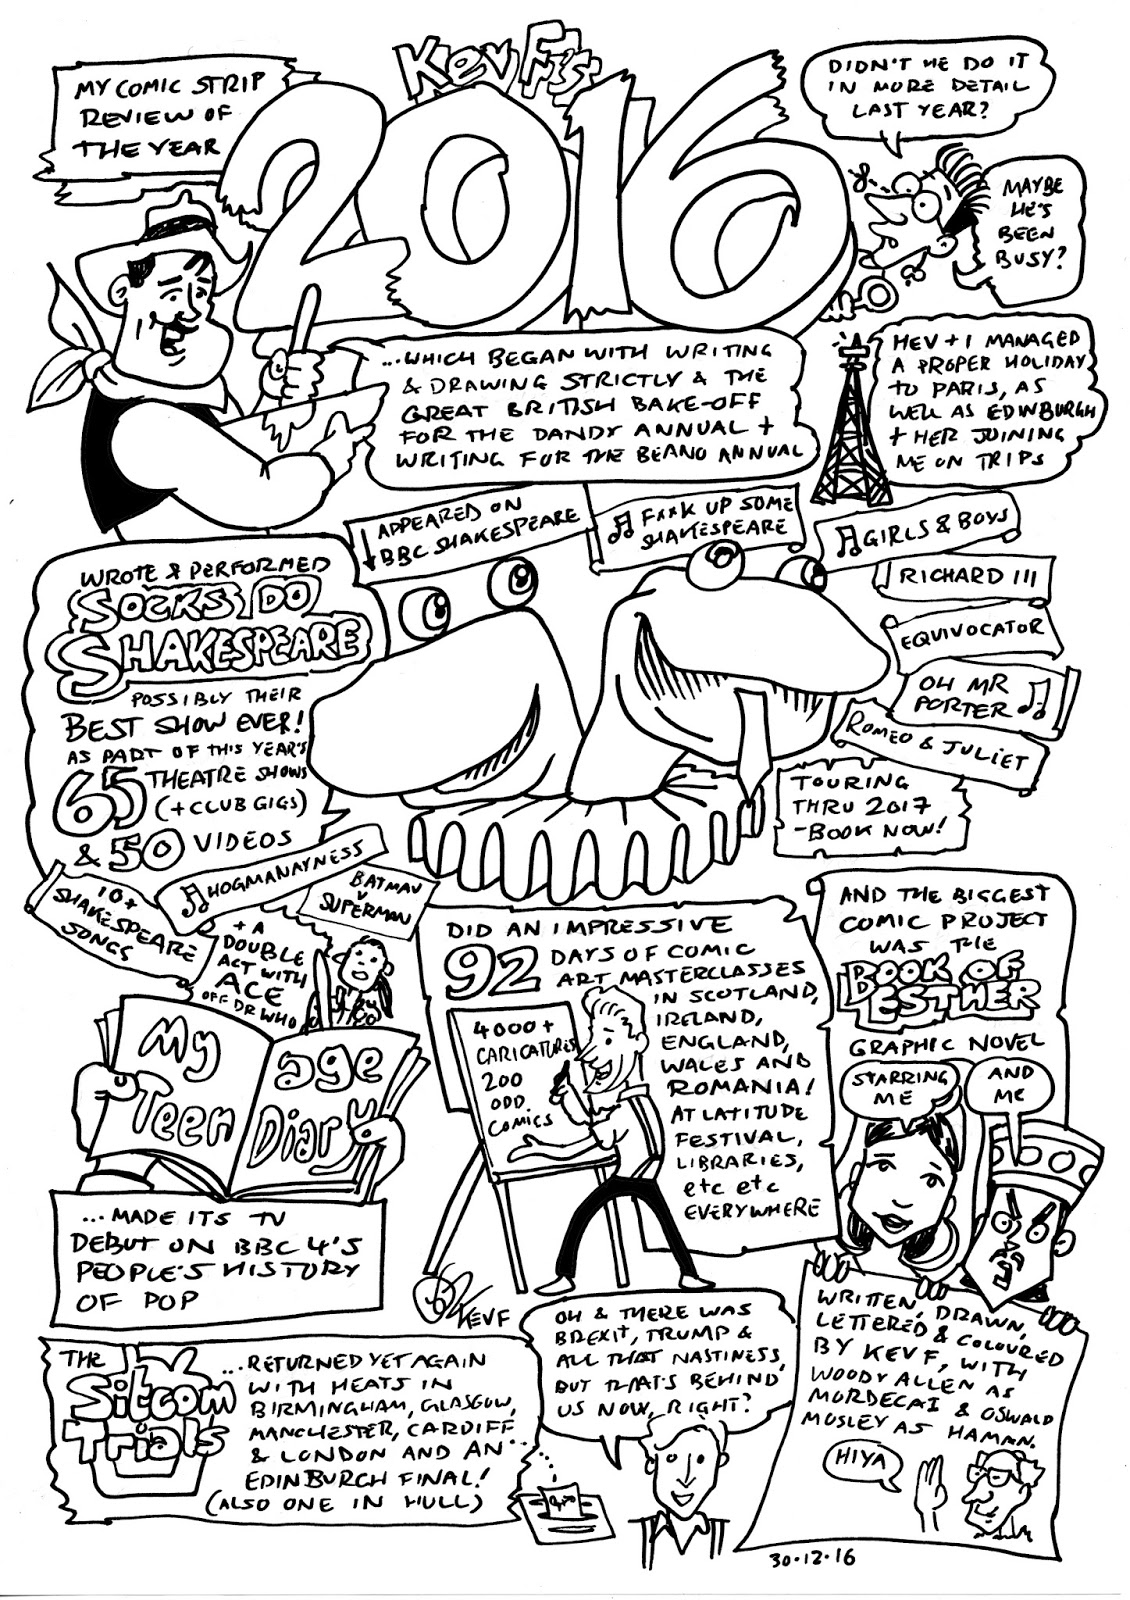 KEV F's
2016
MY COMIC STRIP
REVIEW OF
THE YEAR
DIDN'T HE DO IT
IN MORE DETAIL
LAST YEAR?
MAYBE
HE'S
BEEN
BUSY?
...WHICH BEGAN WITH WRITING
& DRAWING STRICTLY & THE
GREAT BRITISH BAKE-OFF
FOR THE DANDY ANNUAL +
WRITING FOR THE BEANO ANNUAL
HEV + I MANAGED
A PROPER HOLIDAY
TO PARIS, AS
WELL AS EDINBURGH
+ HER JOINING
ME ON TRIPS
WROTE & PERFORMED
SOCKS DO
SHAKESPEARE
POSSIBLY THEIR
BEST SHOW EVER!
AS PART OF THIS YEAR'S
65 THEATRE SHOWS
(+ CLUB GIGS)
& 50 VIDEOS
APPEARED ON
BBC SHAKESPEARE
F**K UP SOME
SHAKESPEARE
GIRLS & BOYS
RICHARD III
EQUIVOCATOR
OH MR
PORTER
ROMEO & JULIET
TOURING
THRU 2017
-BOOK NOW!
10+
SHAKESPEARE
SONGS
HOGMANAYNESS
BATMAN
V
SUPERMAN
+ A
DOUBLE
ACT WITH
ACE
OFF DR WHO
My Teen
age Diary
...MADE ITS TV
DEBUT ON BBC 4'S
PEOPLE'S HISTORY
OF POP
DID AN IMPRESSIVE
92 DAYS OF COMIC
ART MASTERCLASSES
IN SCOTLAND,
IRELAND,
ENGLAND,
WALES AND
ROMANIA!
AT LATITUDE
FESTIVAL,
LIBRARIES,
etc etc
EVERYWHERE
4000+
CARICATURES
200
ODD
COMICS
KEVF
AND THE BIGGEST
COMIC PROJECT
WAS THE
BOOK OF
ESTHER
GRAPHIC NOVEL
STARRING
ME
AND
ME
WRITTEN, DRAWN,
LETTERED & COLOURED
BY KEV F, WITH
WOODY ALLEN AS
MORDECAI & OSWALD
MOSLEY AS HAMAN.
HIYA
THE
Sitcom
Trials
...RETURNED YET AGAIN
WITH HEATS IN
BIRMINGHAM, GLASGOW,
MANCHESTER, CARDIFF
& LONDON AND AN
EDINBURGH FINAL!
(ALSO ONE IN HULL)
OH & THERE WAS
BREXIT, TRUMP &
ALL THAT NASTINESS,
BUT THAT'S BEHIND
US NOW, RIGHT?
30·12·16